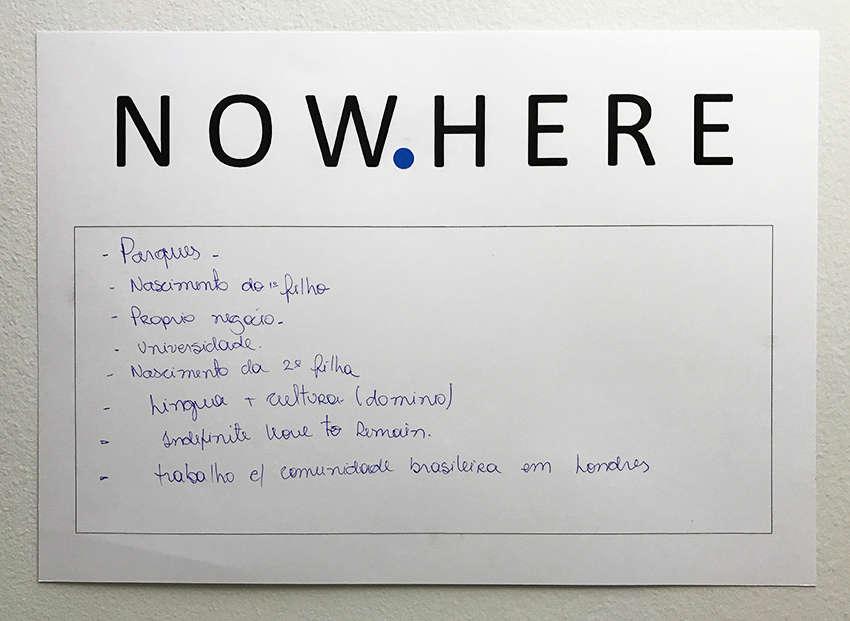 NOW.HERE
- Parques -
- Nascimento do 1º filho
- Proprio negócio -
- Universidade.
- Nascimento da 2ª filha
- Lingua + cultura (domino)
- Indefinite leave to Remain.
- trabalho c/ comunidade brasileira em Londres